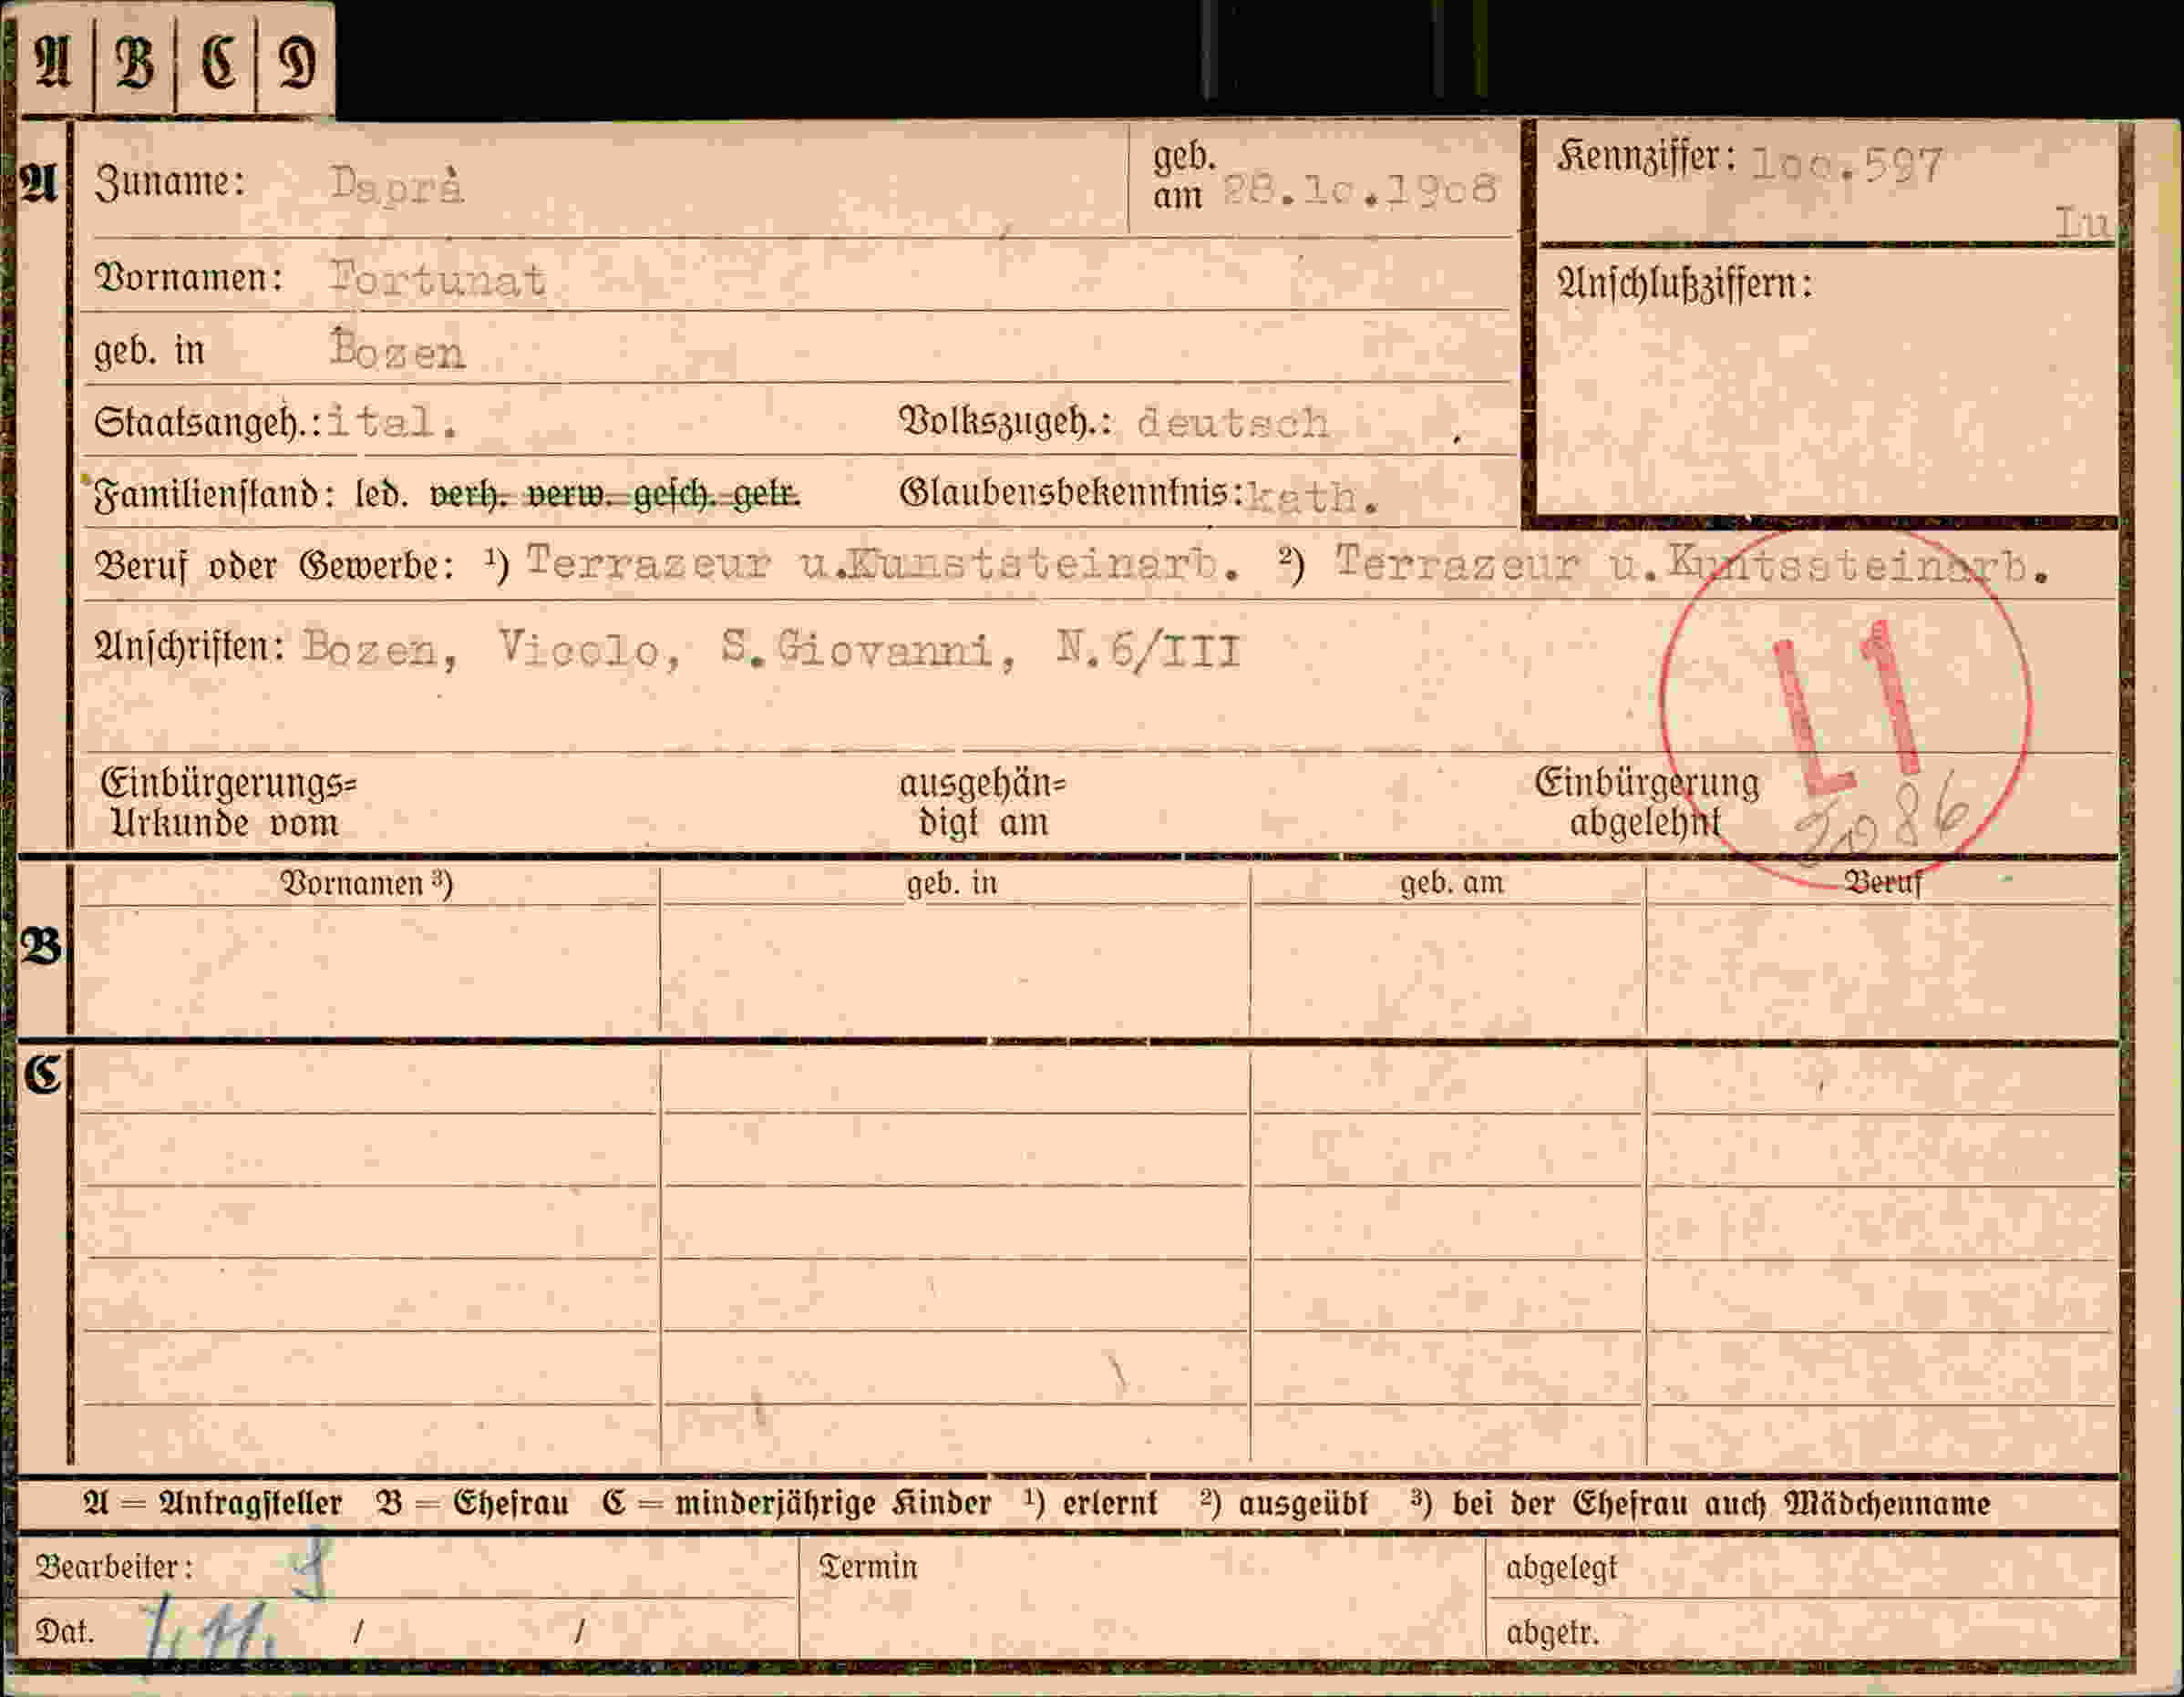 A B C D
A Zuname: Daprà geb. am 28.10.1908 Kennziffer: 100.597
Lu
Vornamen: Fortunat Anschlußziffern:
geb. in Bozen
Staatsangeh.: ital. Volkszugeh.: deutsch
Familienstand: led. verh. verw. gesch. getr. Glaubensbekenntnis: kath.
Beruf oder Gewerbe: ¹) Terrazeur u.Kunststeinarb. ²) Terrazeur u.Kuntssteinarb.
Anschriften: Bozen, Vicolo, S.Giovanni, N.6/III
L1
Einbürgerungs= ausgehän= Einbürgerung
Urkunde vom digt am abgelehnt 2086
Vornamen ³) geb. in geb. am Beruf
B
C
A = Antragsteller B = Ehefrau C = minderjährige Kinder ¹) erlernt ²) ausgeübt ³) bei der Ehefrau auch Mädchenname
Bearbeiter: Termin abgelegt
Dat. / / abgetr.